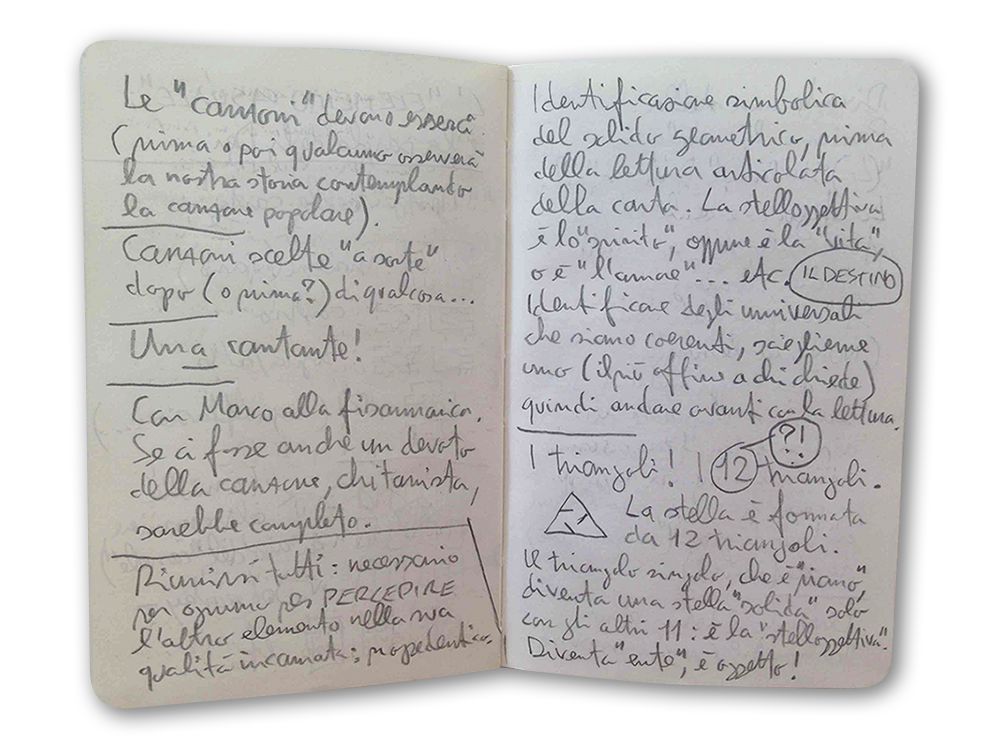 Le "canzoni" devono esserci
(prima o poi qualcuno osserverà
la nostra storia contemplando
la canzone popolare).
Canzoni scelte "a sorte"
dopo (o prima?) di qualcosa...
Una cantante!
Con Marco alla fisarmonica.
Se ci fosse anche un devoto
della canzone, chitarrista,
sarebbe completo.
Riunirsi tutti: necessario
per ognuno per PERCEPIRE
l'altro elemento nella sua
qualità incarnata: propedeutico.
Identificazione simbolica
del solido geometrico, prima
della lettura articolata
della carta. La stelloggettiva
è lo "spirito", oppure è la "vita",
o è "l'amore"... etc. IL DESTINO
Identificare degli universali
che siano coerenti, sceglierne
uno (il più affine a chi chiede)
quindi andare avanti con la lettura.
?!
I triangoli! I 12 triangoli.
La stella è formata
da 12 triangoli.
Il triangolo singolo, che è "piano",
diventa una stella "solida" solo
con gli altri 11: è la "stelloggettiva".
Diventa "ente", è oggetto!